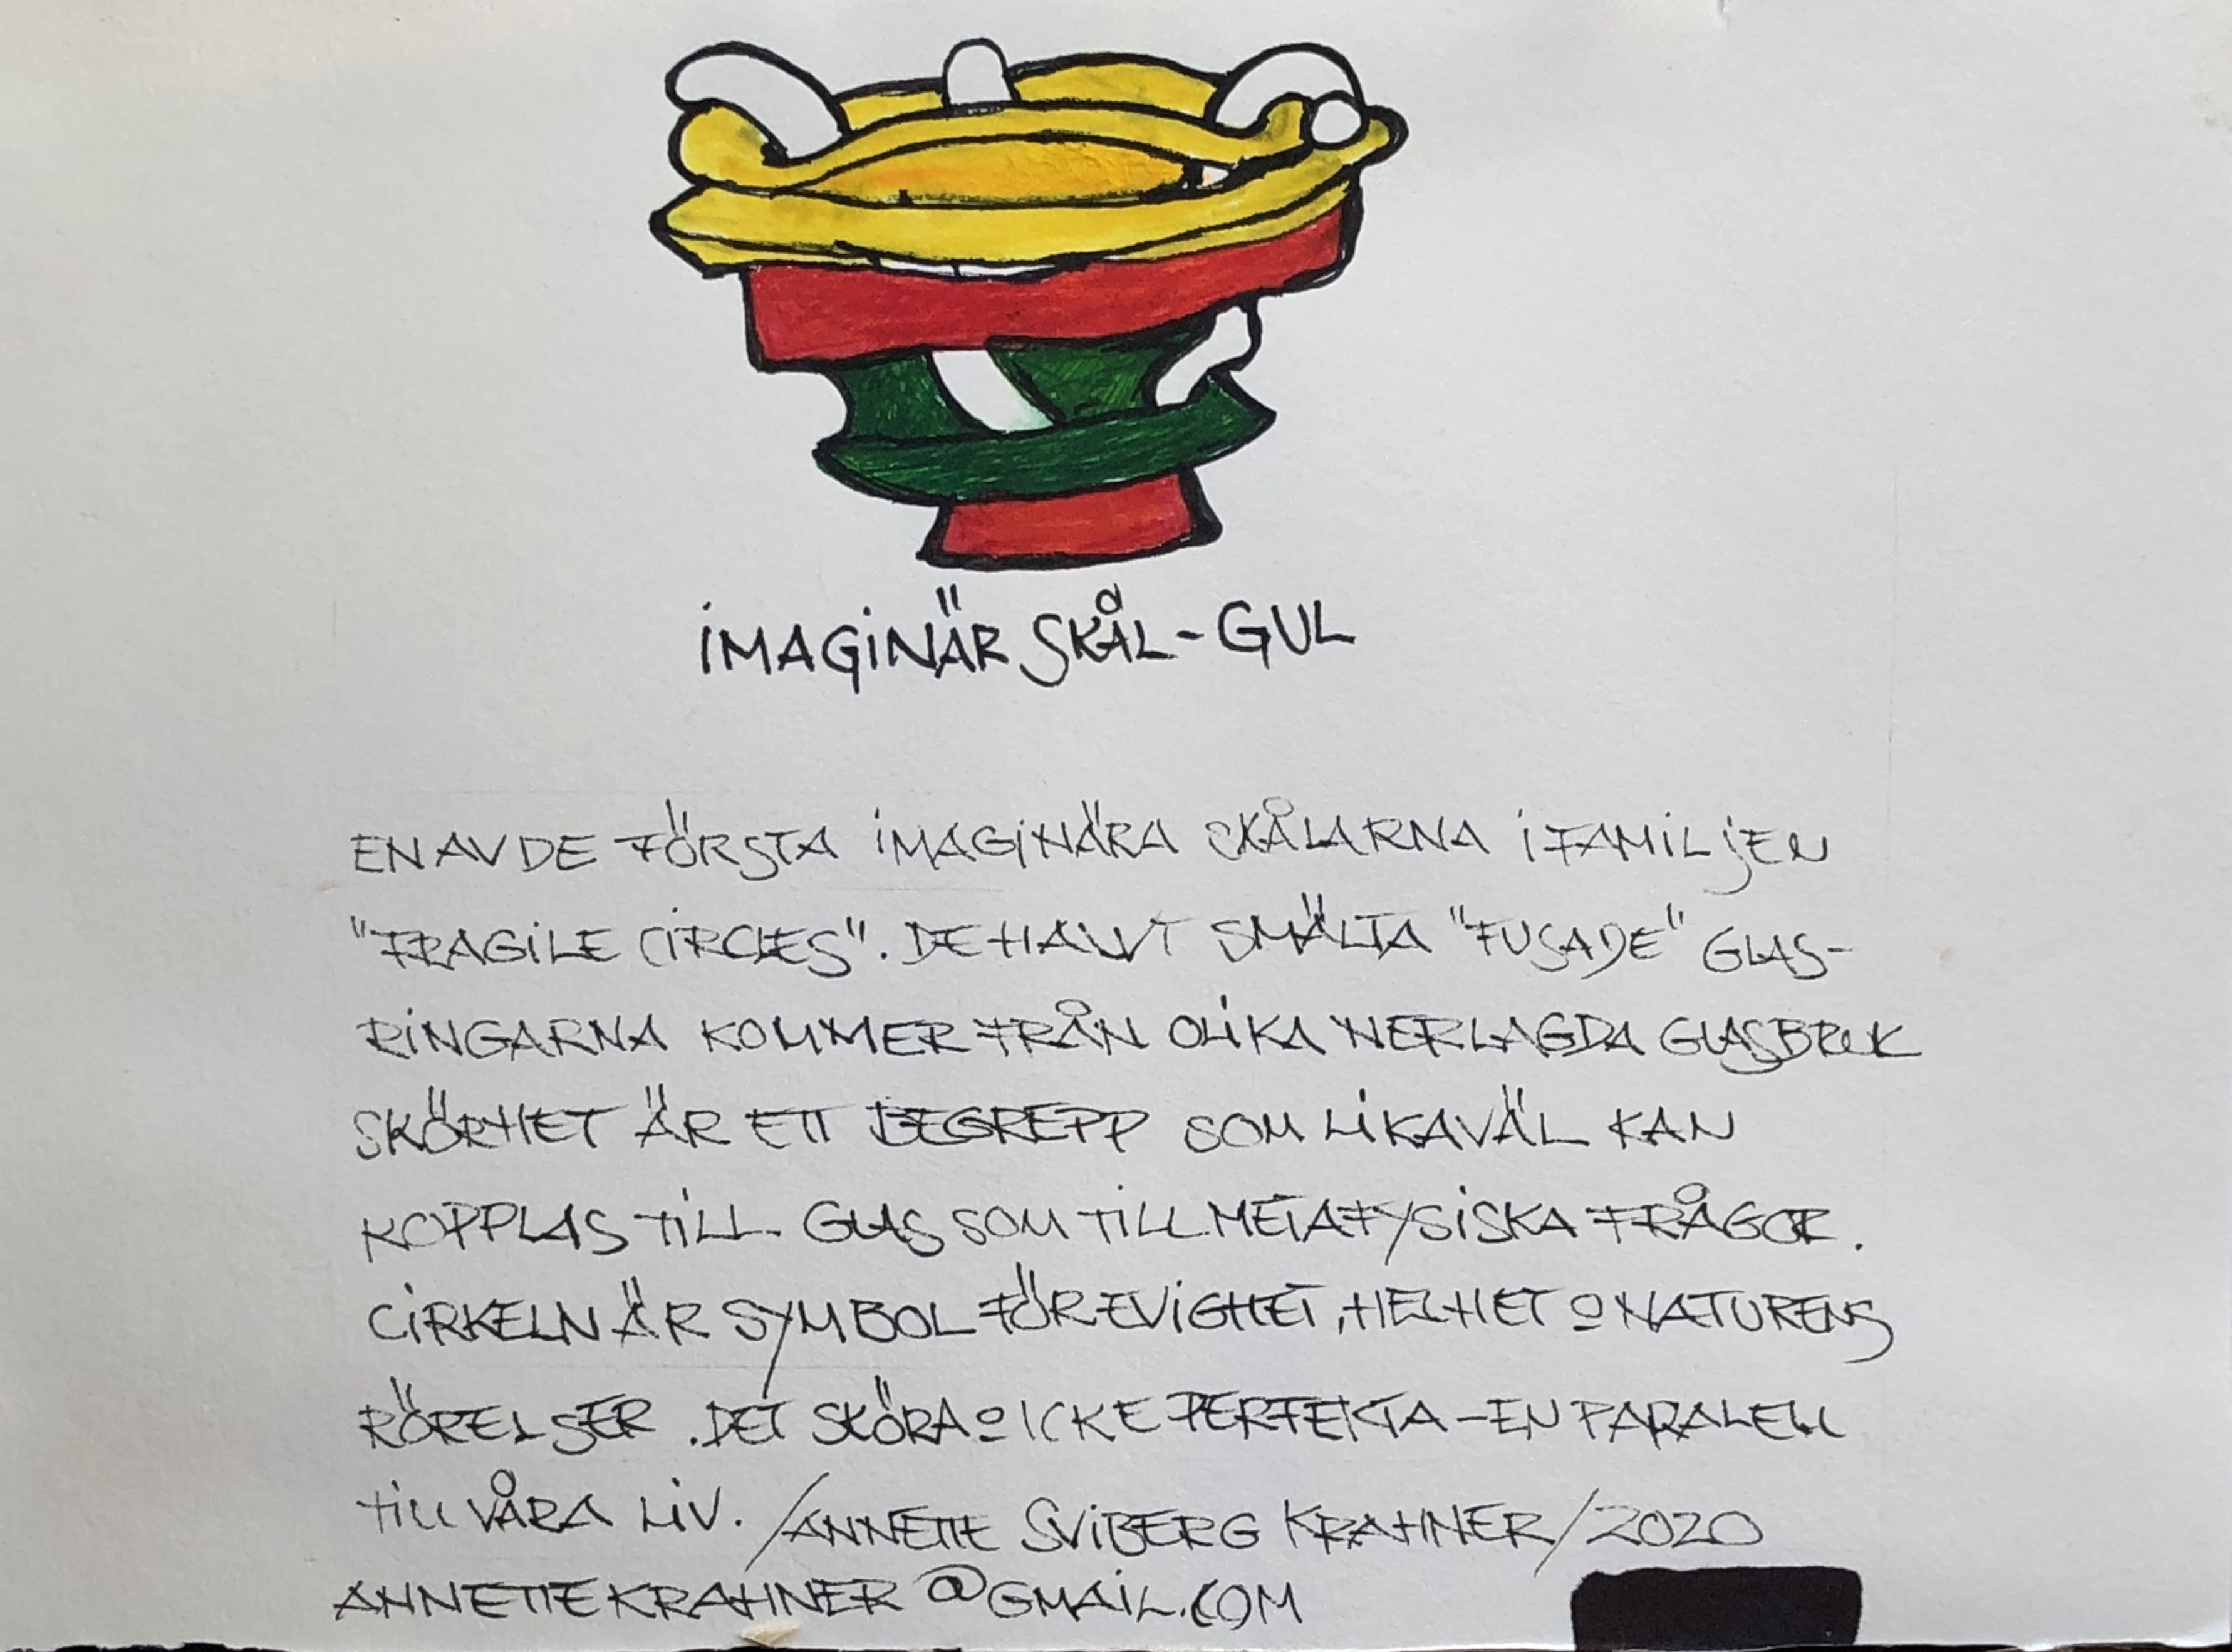 IMAGINÄR SKÅL - GUL
EN AV DE FÖRSTA IMAGINÄRA SKÅLARNA I FAMILJEN
"FRAGILE CIRCLES". DE HALVT SMÄLTA "FUSADE" GLAS-
RINGARNA KOMMER FRÅN OLIKA NERLAGDA GLASBRUK
SKÖRHET ÄR ETT BEGREPP SOM LIKAVÄL KAN
KOPPLAS TILL GLAS SOM TILL METAFYSISKA FRÅGOR.
CIRKELN ÄR SYMBOL FÖR EVIGHET, HELHET O NATURENS
RÖRELSER. DET SKÖRA O ICKE PERFEKTA - EN PARALELL
TILL VÅRA LIV. /ANNETTE SVIBERG KRAHNER/2020
ANNETTEKRAHNER@GMAIL.COM